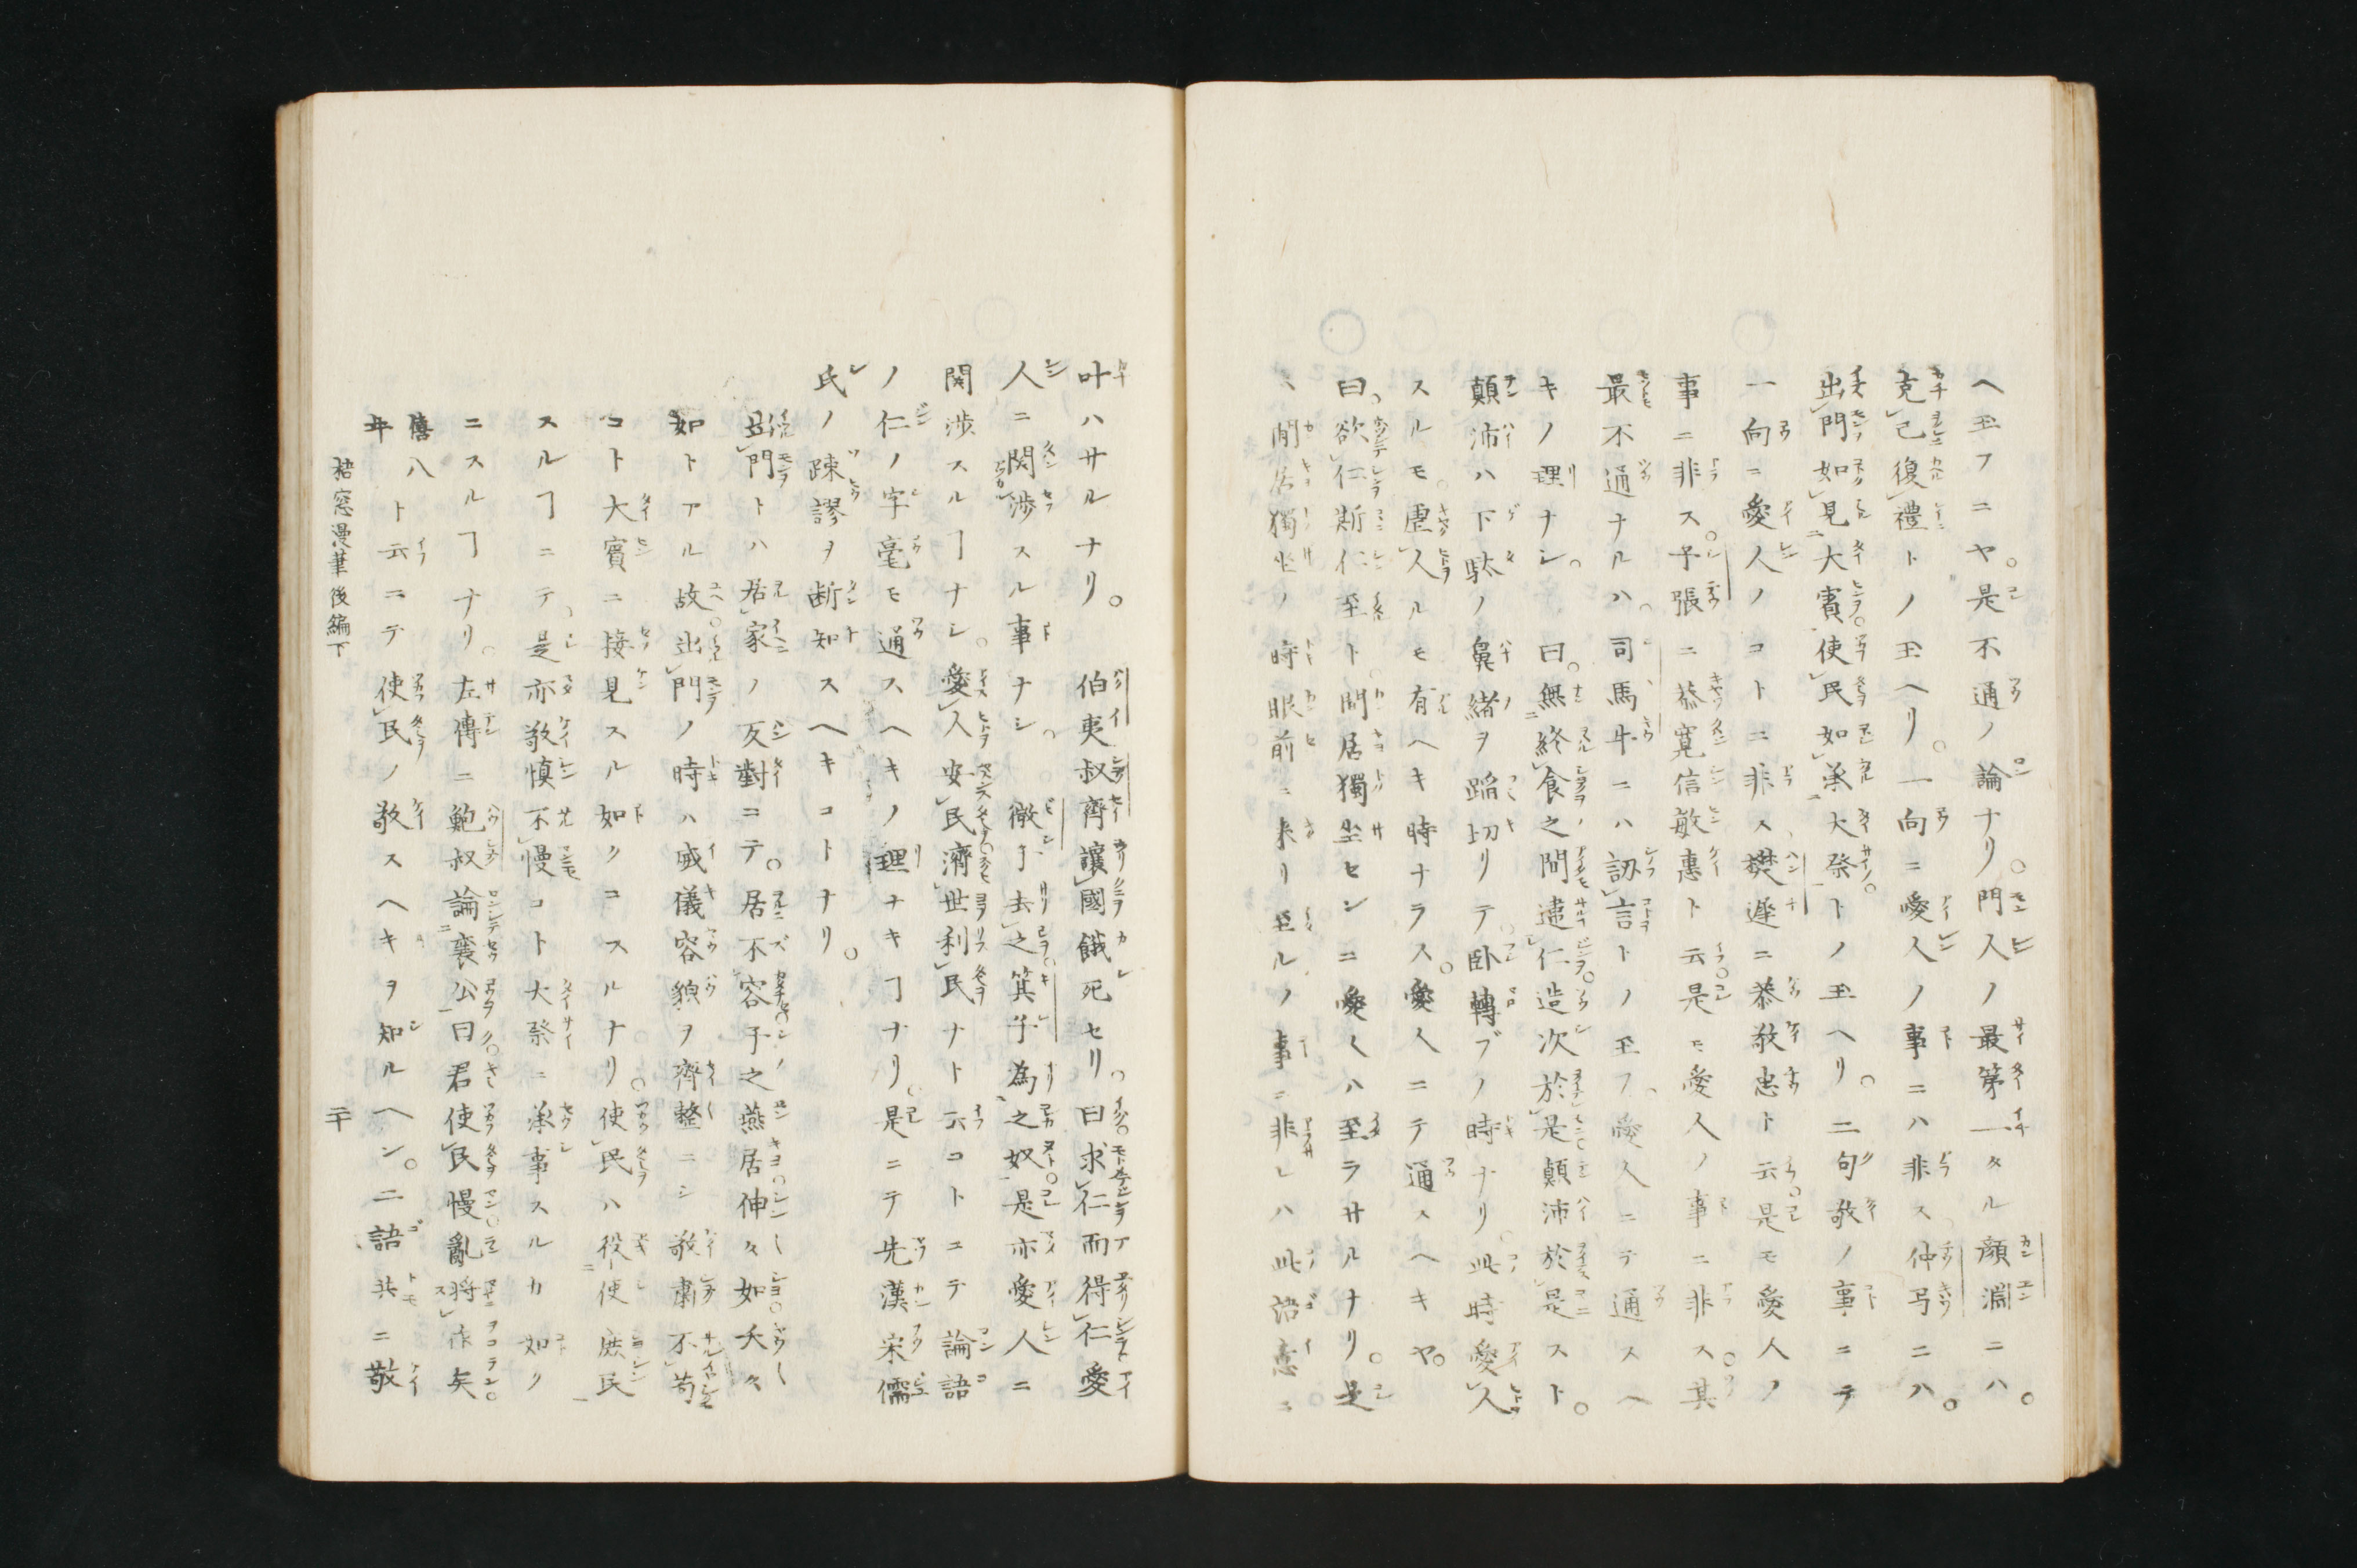 ヘ玉フニヤ。是不通ノ論ナリ。門人ノ最第一タル顔淵ニハ。
克己復禮トノ玉ヘリ。一向ニ愛人ノ事ニハ非ス。仲弓ニハ。
出門如見大賓。使民如承大祭トノ玉ヘリ。二句敬ノ事ニテ
一向ニ愛人ノコトニ非ス、樊遲ニ恭敬忠ト云。是モ愛人ノ
事ニ非ス。子張ニ恭寛信敏惠ト云。是モ愛人ノ事ニ非ス。其
最不通ナルハ、司馬牛ニハ訒言トノ玉フ、愛人ニテ通スヘ
キノ理ナシ。曰。無終食之間違仁。造次於是顛沛於是スト。
顛沛ハ下駄ノ鼻緒ヲ蹈切リテ。臥轉ブノ時ナリ。此時愛人
スルモ。虐人ルモ有ヘキ時ナラス。愛人ニテ通スヘキヤ。
曰。欲仁斯仁至ト。閒居獨坐センニ愛人ハ至ラサルナリ。是
ハ閒居獨坐ノ時眼前ニ来リ至ルノ事ニ非レハ此語意ニ
叶ハサルナリ。伯夷叔齊讓國餓死セリ。曰求仁而得仁愛
人ニ関渉スル事ナシ。微子去之箕子為之奴。是亦愛人ニ
関渉スルヿナシ。愛人安民濟世利民ナト云コトニテ論語
ノ仁ノ字毫モ通スヘキノ理ナキヿナリ。是ニテ先漢宋儒
氏ノ疎謬ヲ断知スヘキコトナリ。
出門トハ居家ノ反對ニテ。居不容子之燕居伸々如夭々
如トアル故。出門ノ時ハ威儀容貌ヲ齊整ニシ敬肅不苟
コト大賓ニ接見スル如クコスルナリ。使民ハ役使庶民
スルヿニテ、是亦敬慎不慢コト大祭ニ承事スルカ如ク
ニスルヿナリ。左傳ニ鮑叔論襄公曰君使民慢亂將作矣
僖八
年ト云ニテ使民ノ敬スヘキヲ知ルヘシ。二語共ニ敬
梧窓漫筆後編下 二十